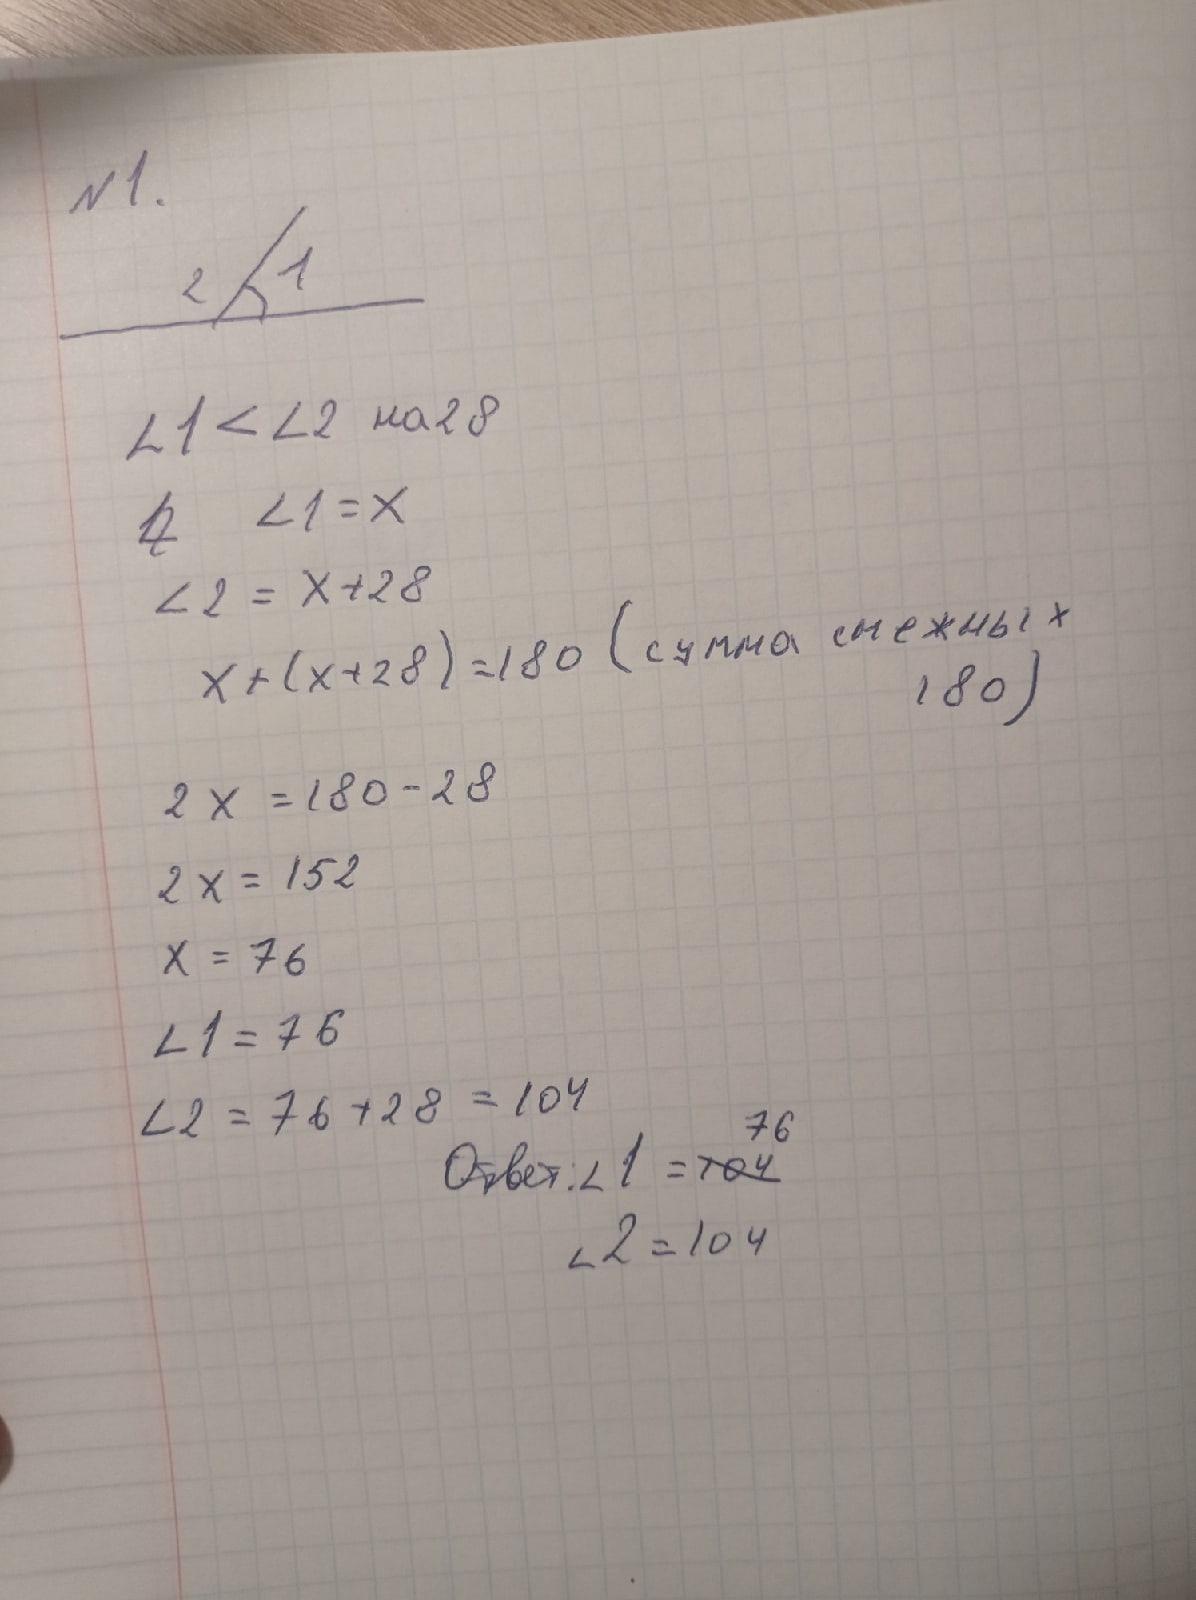 №1.
2 1
∠1 < ∠2 на 28
∠1 = x
∠2 = x+28
x+(x+28)=180 (сумма смежных
180)
2x = 180-28
2x = 152
x = 76
∠1 = 76
∠2 = 76+28 = 104
76
Ответ: ∠1 = 104
∠2 = 104